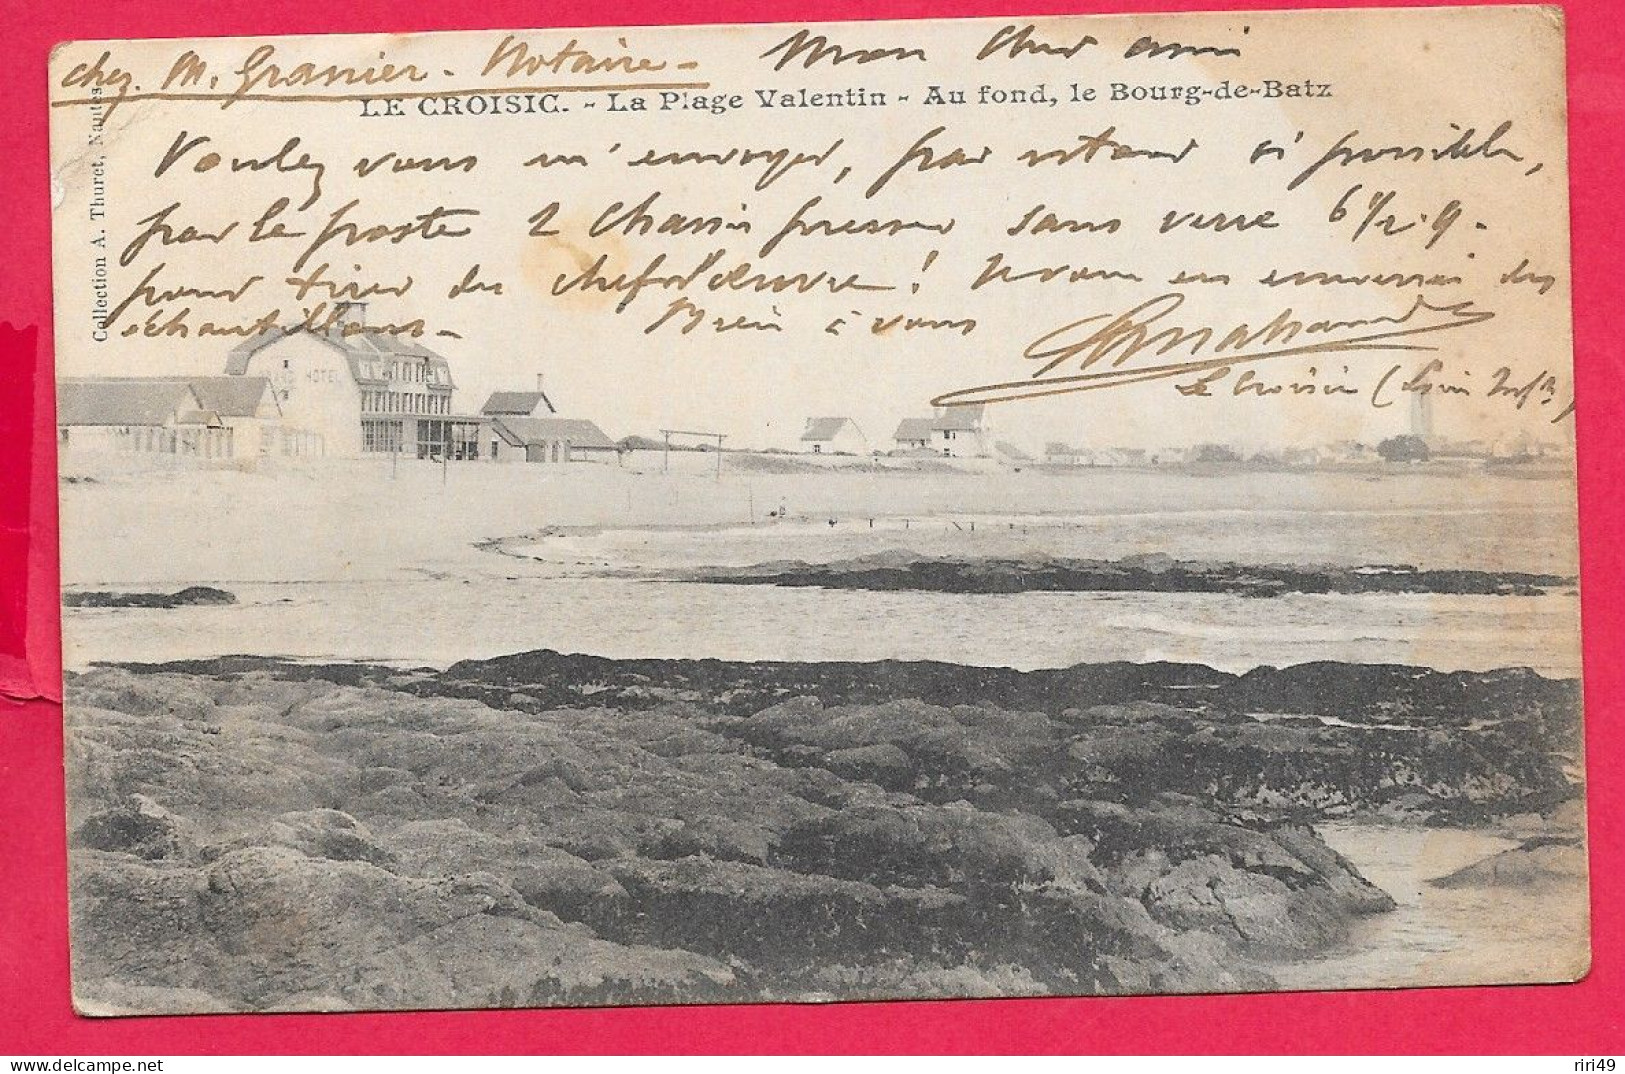 chez M. Granier - Notaire - Mon cher ami
LE CROISIC. - La Plage Valentin - Au fond, le Bourg-de-Batz
Collection A. Thuret, Nantes
Voulez vous m'envoyer, par retour si possible,
par la poste 2 chassis presses sans verre 6 1/2.9-
pour tirer des chefs d'œuvre! Nous en enverrai des
échantillons - Bien à vous
Le Croisic (Loire Inf)
GRAND HOTEL
riri49